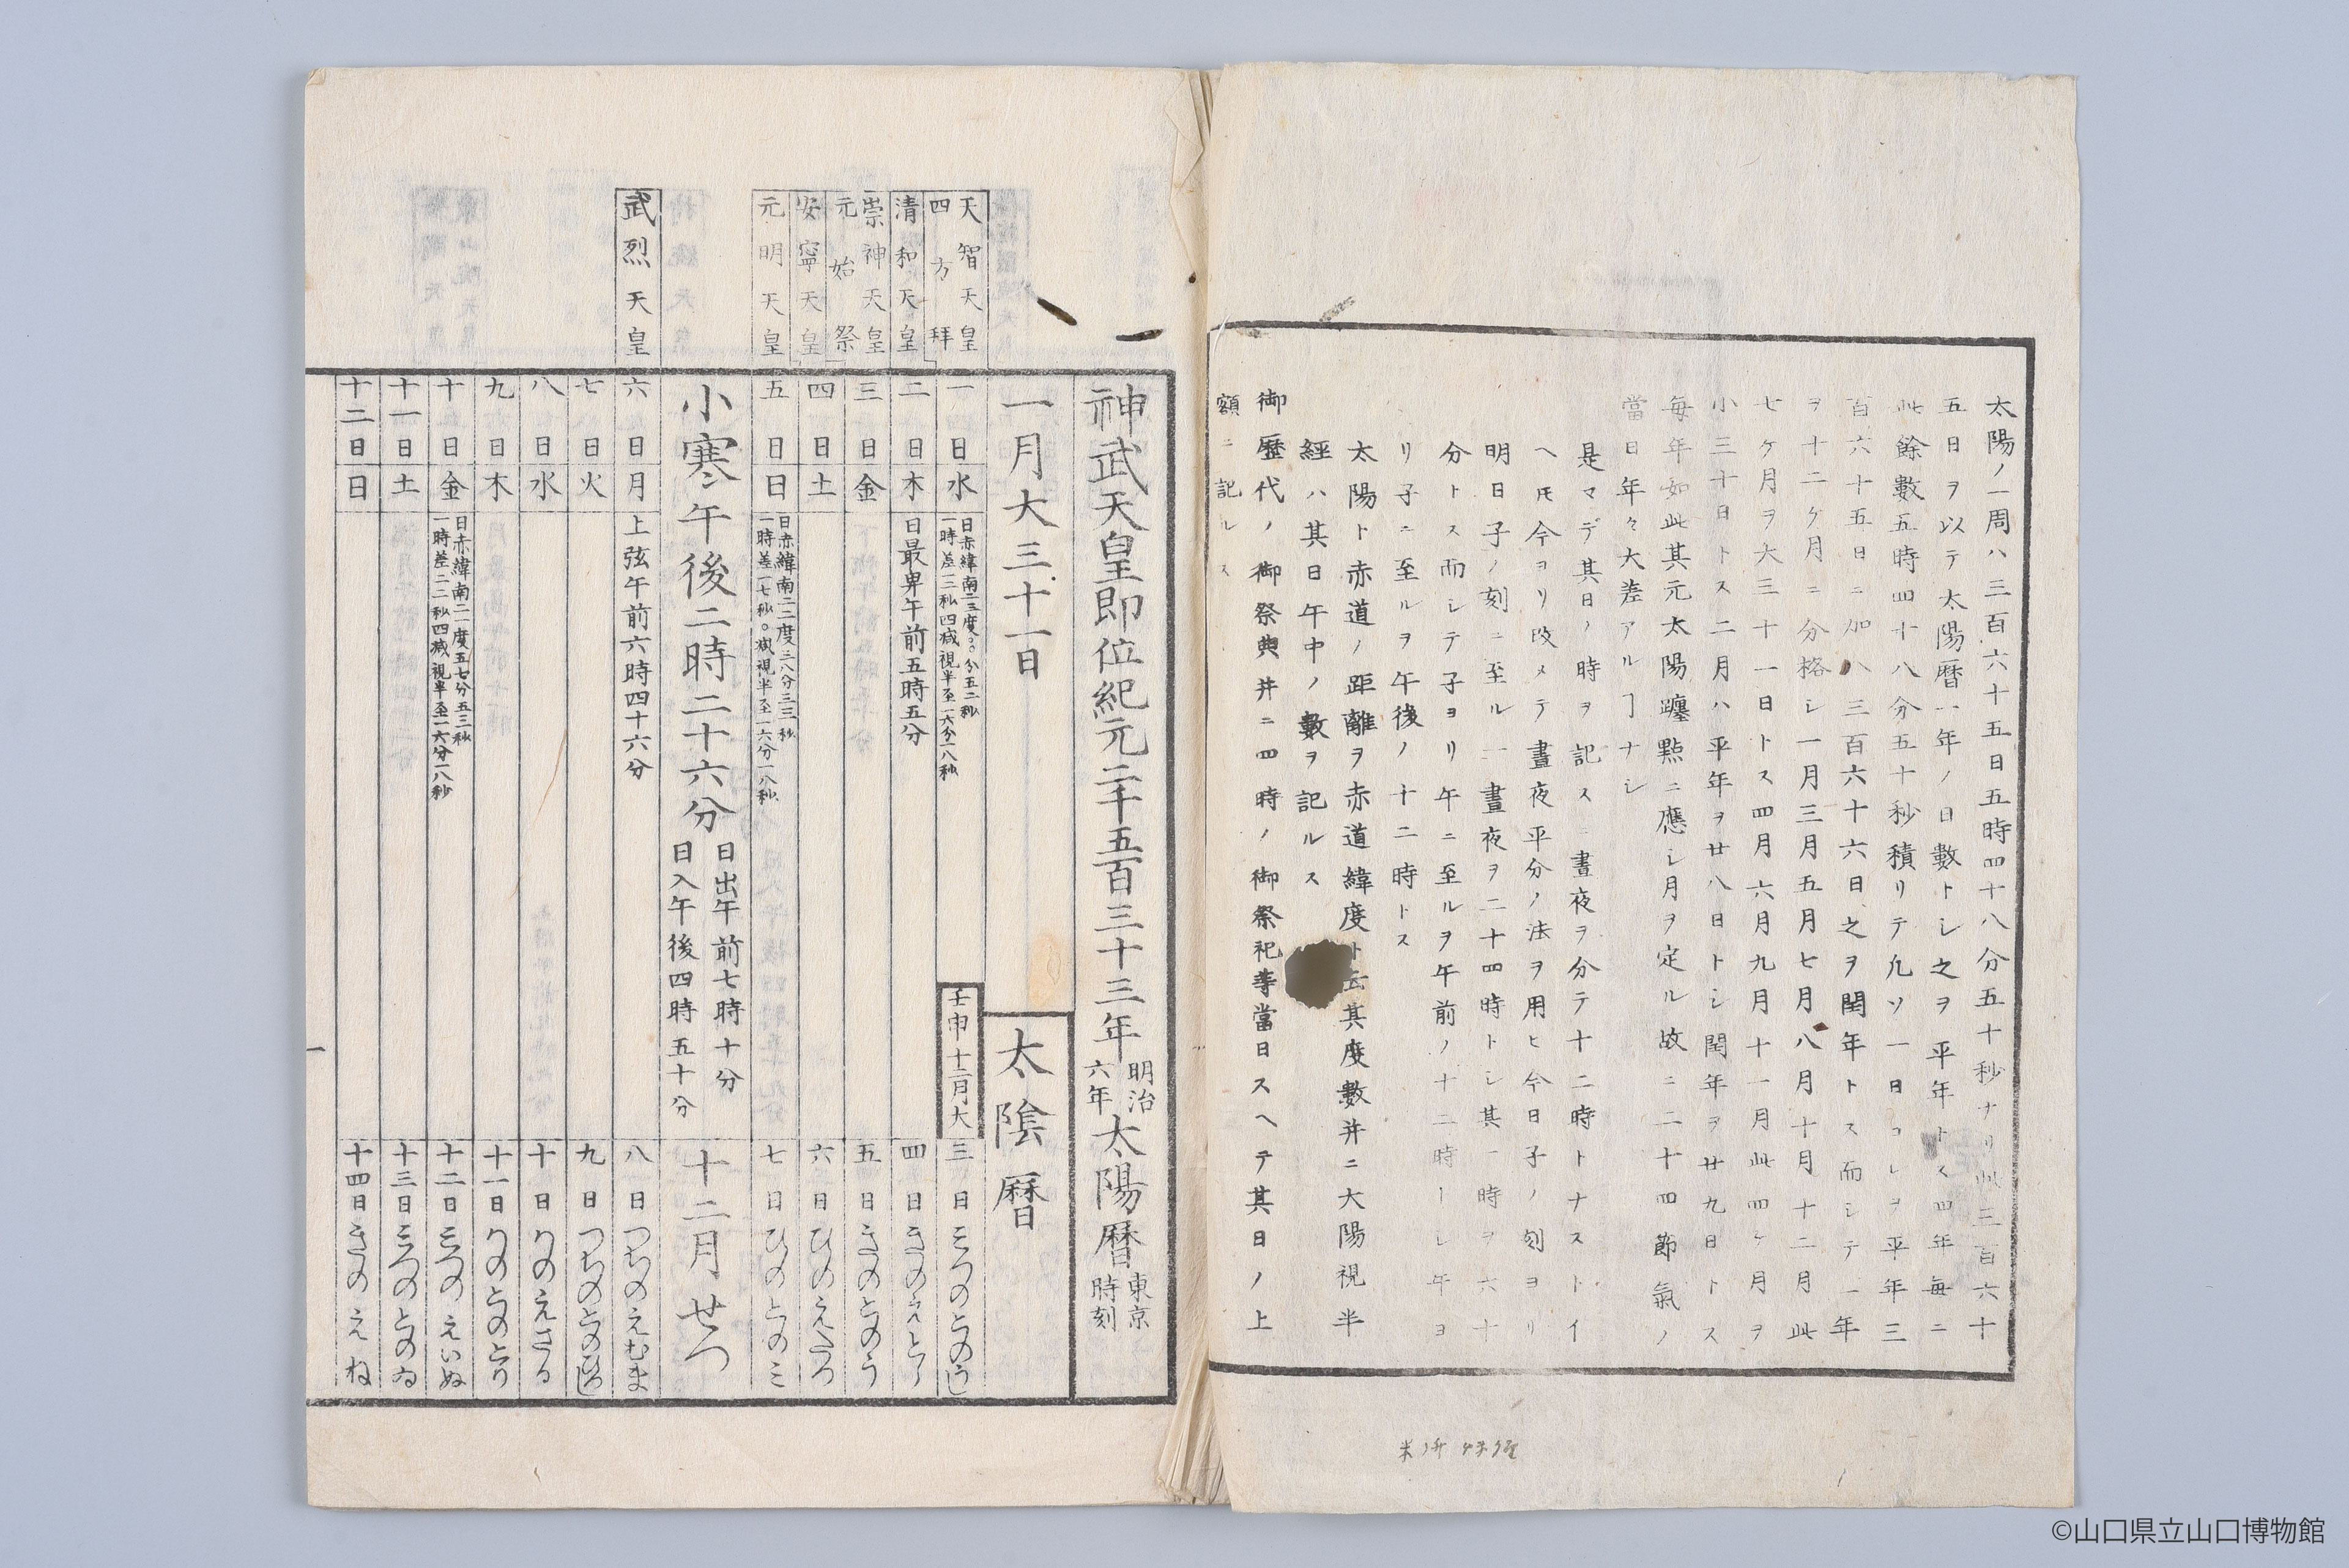 太陽ノ一周ハ三百六十五日五時四十八分五十秒ナリ此三百六十
五日ヲ以テ太陽暦一年ノ日數トシ之ヲ平年トス四年毎ニ
此餘數五時四十八分五十秒積リテ凡ソ一日コレヲ平年三
百六十五日ニ加ハ三百六十六日之ヲ閏年トス而シテ一年
ヲ十二ケ月ニ分格シ一月三月五月七月八月十月十二月此
七ケ月ヲ大三十一日トス四月六月九月十一月此四ケ月ヲ
小三十日トス二月ハ平年ヲ廿八日トシ閏年ヲ廿九日トス
毎年如此其元太陽躔點ニ應シ月ヲ定ル故ニ二十四節氣ノ
當日年々大差アルヿナシ
是マデ其日ノ時ヲ記スニ晝夜ヲ分テ十二時トナストイ
ヘ𪜈今ヨリ改メテ晝夜平分ノ法ヲ用ヒ今日子ノ刻ヨリ
明日子ノ刻ニ至ル一晝夜ヲ二十四時トシ其一時ヲ六十
分トス而シテ子ヨリ午ニ至ルヲ午前ノ十二時トシ午ヨ
リ子ニ至ルヲ午後ノ十二時トス
太陽ト赤道ノ距離ヲ赤道緯度ト云其度數并ニ大陽視半
經ハ其日午中ノ數ヲ記ルス
御歴代ノ御祭典并ニ四時ノ御祭祀等當日スヘテ其日ノ上
額ニ記ルス
神武天皇即位紀元二千五百三十三年 明治六年 太陽暦 東京時刻
一月大三十一日 太陰暦
壬申十二月大
天智天皇 四方拜 一日 水 日赤緯南二三度〇〇分五二秒 一時差一三秒四減視半至一六分一八秒 三日 みつのとのうし
清和天皇 二日 木 日最卑午前五時五分 四日 きのえとら
崇神天皇 元始祭 三日 金 五日 きのとのう
安寧天皇 四日 土 六日 ひのえたつ
元明天皇 五日 日 日赤緯南二二度三八分三三秒 一時差一七秒〇減視半至一六分一八秒 七日 ひのとのミ
小寒 午後二時二十六分 日出午前七時十分 日入午後四時五十分 十二月せつ
武烈天皇 六日 月 上弦午前六時四十六分 八日 つちのえむま
七日 火 九日 つちのとのひつし
八日 水 十日 かのえさる
九日 木 十一日 かのとのとり
十日 金 日赤緯南二一度五七分五三秒 一時差二二秒四減視半至一六分一八秒 十二日 みつのえいぬ
十一日 土 十三日 みつのとのゐ
十二日 日 十四日 きのえね
一
©山口県立山口博物館